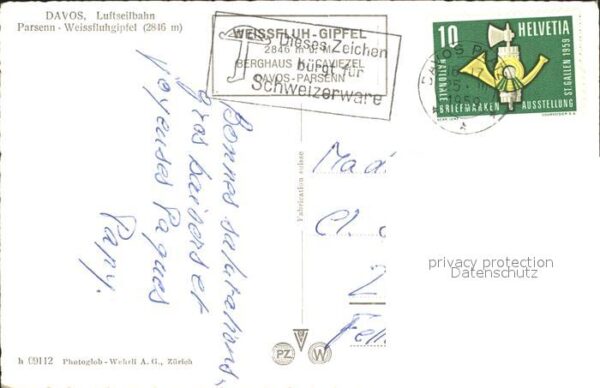 DAVOS, Luftseilbahn
Parsenn - Weissfluhgipfel (2846 m)
WEISSFLUH-GIPFEL
2846 m ü. M.
BERGHAUS K. CAVIEZEL
DAVOS-PARSENN
Dieses Zeichen
bürgt für
Schweizerware
10 HELVETIA
NATIONALE
BRIEFMARKEN AUSSTELLUNG
ST. GALLEN 1959
DAVOS
Bonnes salutations,
gros baisers et
Joyeuses Paques
Papy.
Fabrication suisse
Mad
Cl
2
Fell
privacy protection
Datenschutz
h 09112 Photoglob-Wehrli A. G., Zürich
PZ W